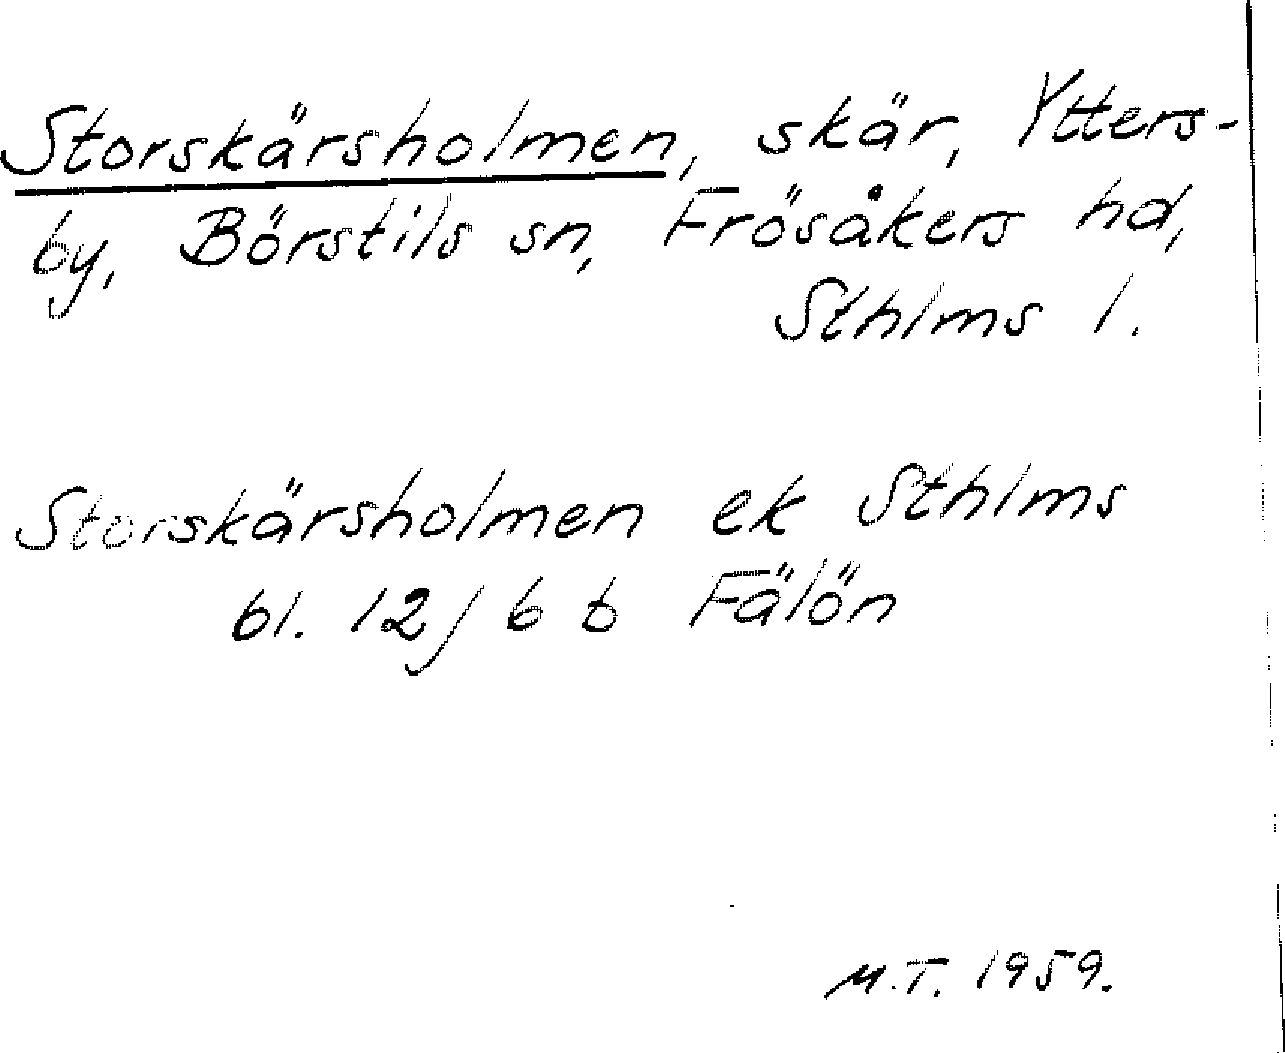 Storskärsholmen, skär, Ytters-
by, Börstils sn, Frösåkers hd,
Sthlms l.
Storskärsholmen ek Sthlms
bl. 12/6 b Fälön
M.T. 1959.